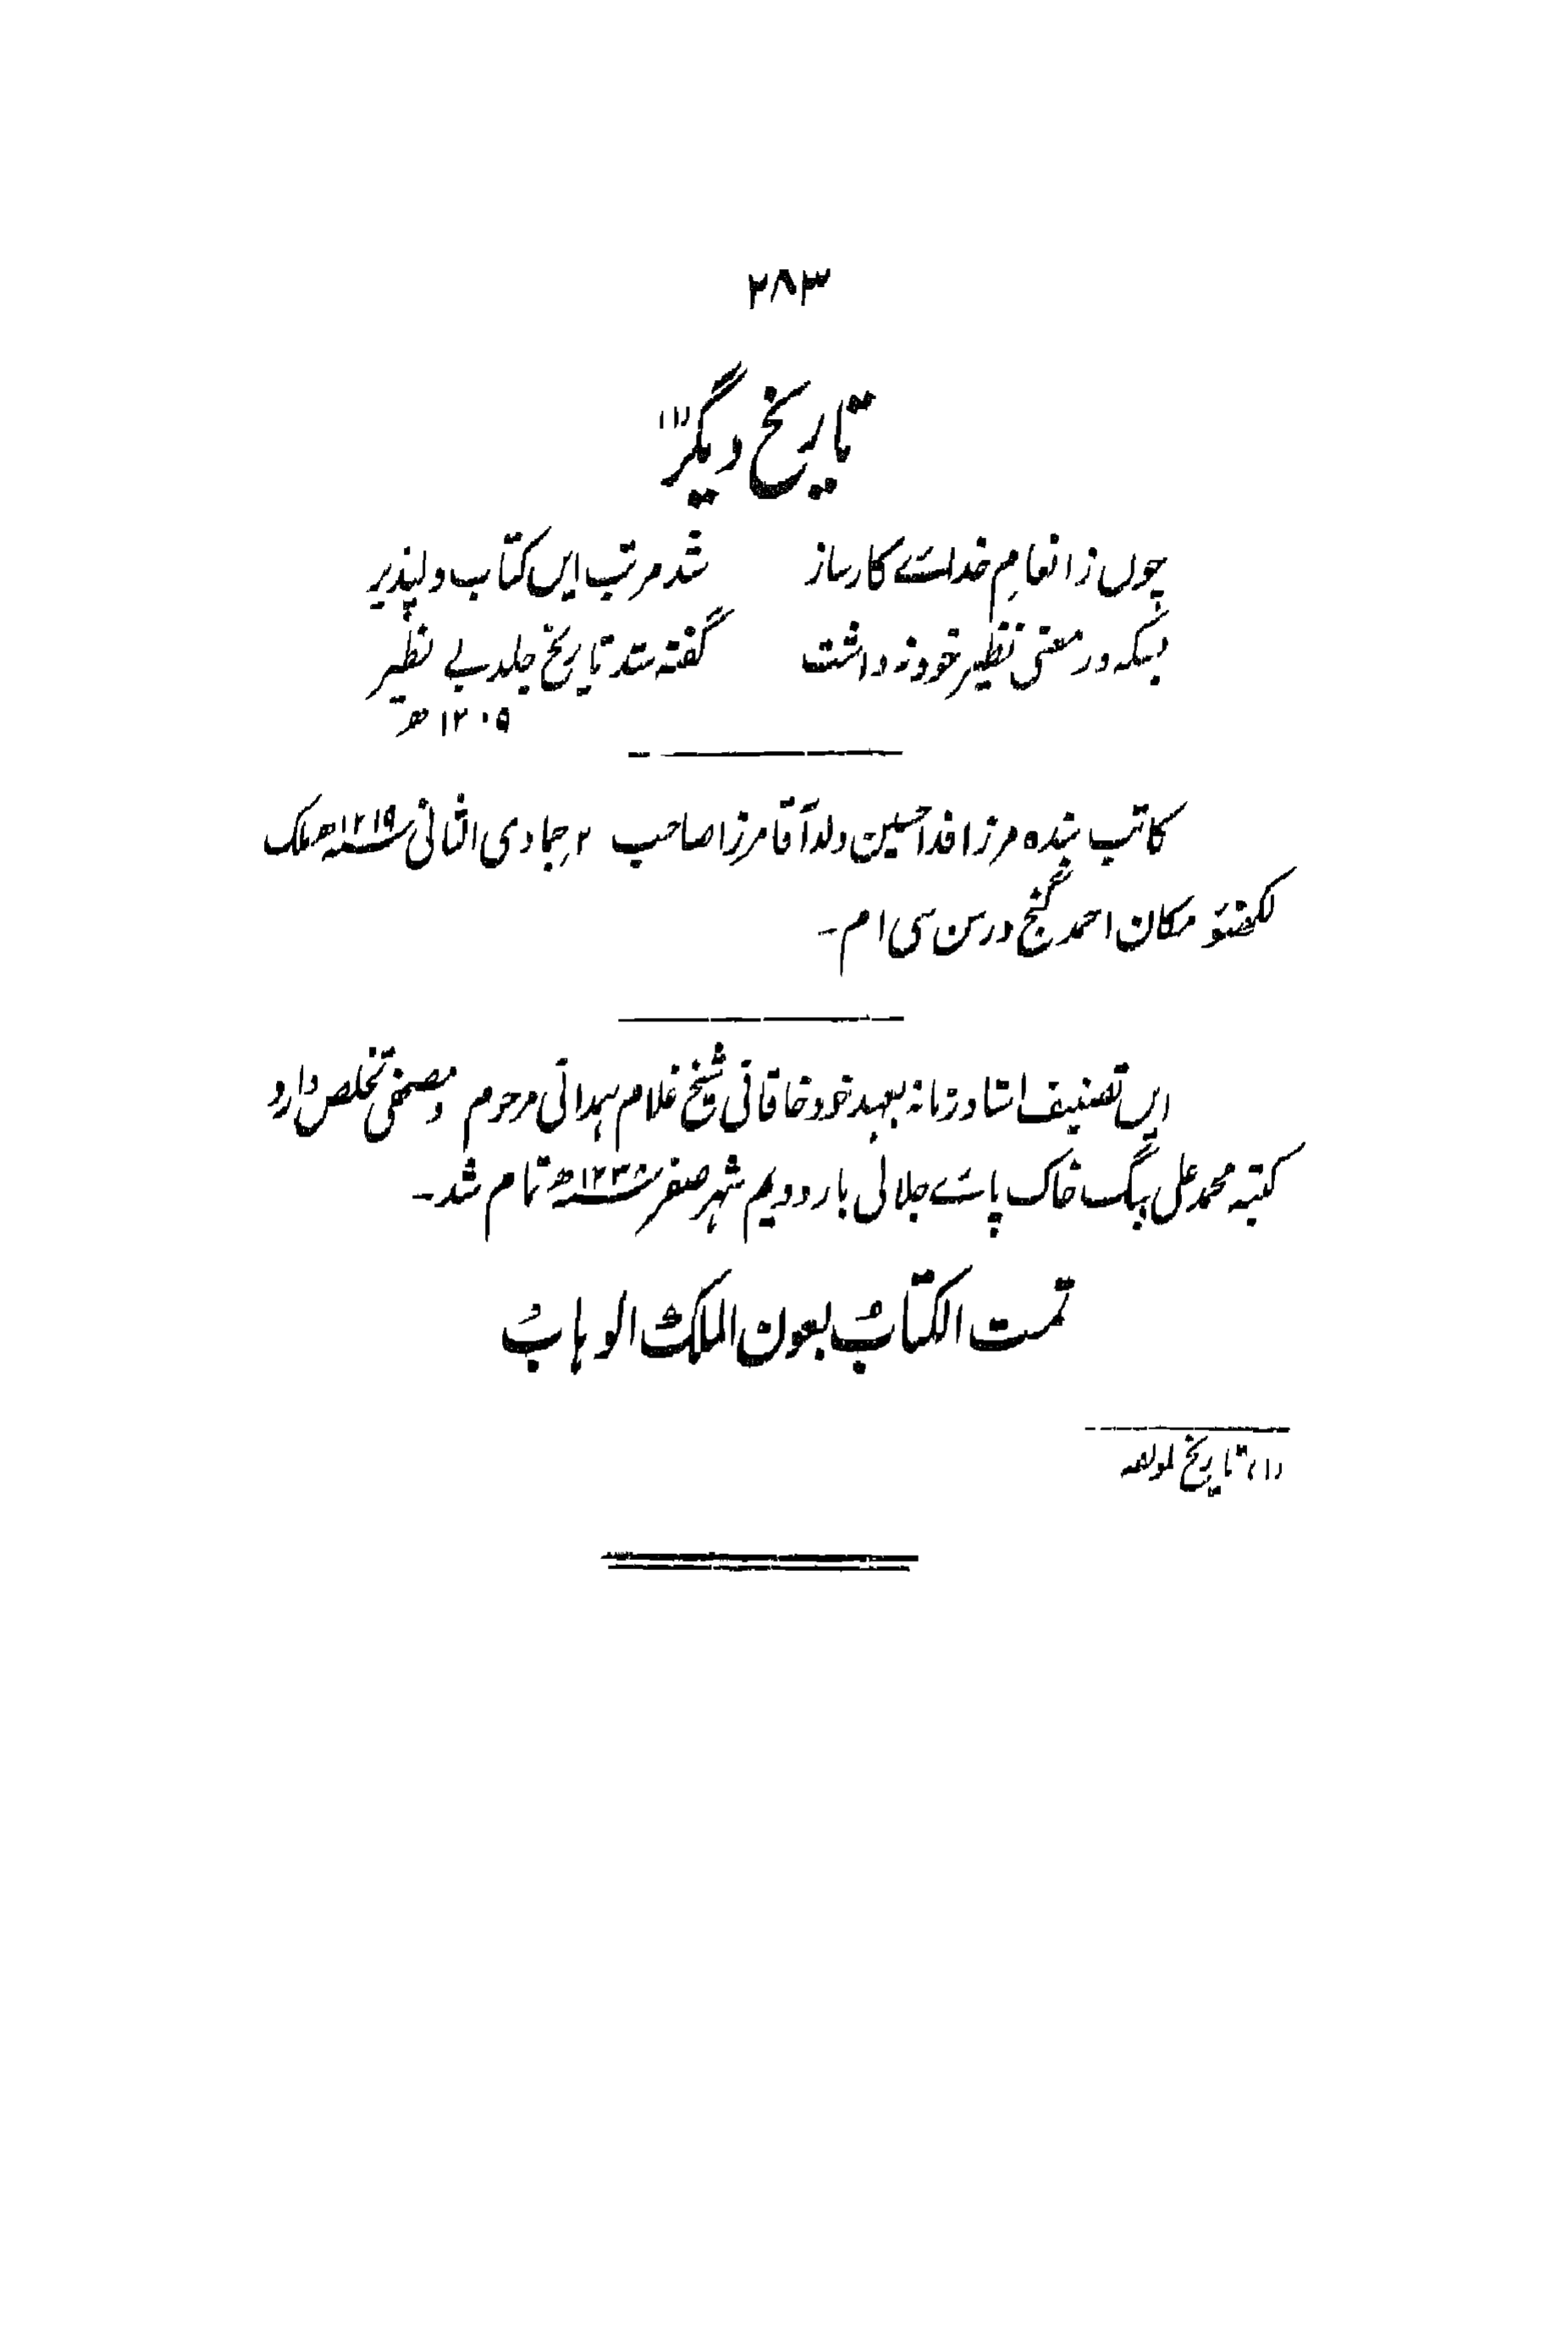 ۲۸۳
تاریخ دیگر (۱)
چوں ز انعامِ خدائے کارساز شد مرتب ایں کتاب دلپذیر
بسکہ در معنی نظیر خود نہ داشت گفتہ شد تاریخ جلد بے نظیر
۱۲۰۹ھ
کاتب بندہ مرزا فدا حسین ولد آقا مرزا صاحب ۲ر جمادی الثانی ۱۲۱۹ھ ملک
لکھنؤ مکان احمد گنج در سن سی ام۔
ایں تصنیف استاد زمانہ بعہد خود خاقانی شیخ غلام ہمدانی مرحوم و مصحفی تخلص دارد
کتبہ محمد علی بیگ خاک پائے جلالی بار دویم شہر صفر ۱۲۳۰ھ تمام شد۔
تمت الکتاب بعون الملک الوہاب
(۱) تاریخ لمولفہ